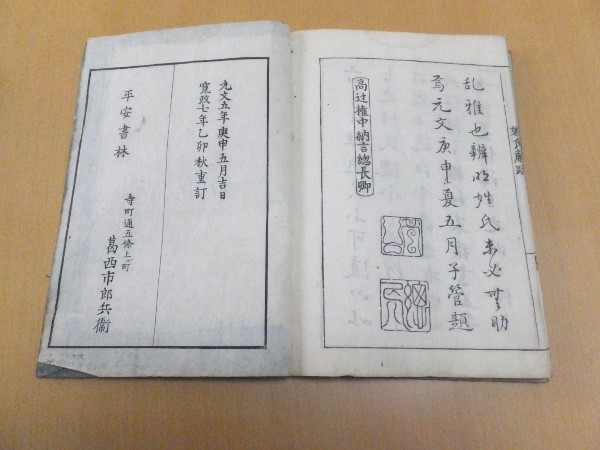 乱雅也辨明姓氏未必無助
焉元文庚申夏五月子菅題
高辻権中納言総長卿
元文五年庚申五月吉日
寛政七年乙卯秋重訂
平安書林
寺町通五條上ル町
葛西市郎兵衞